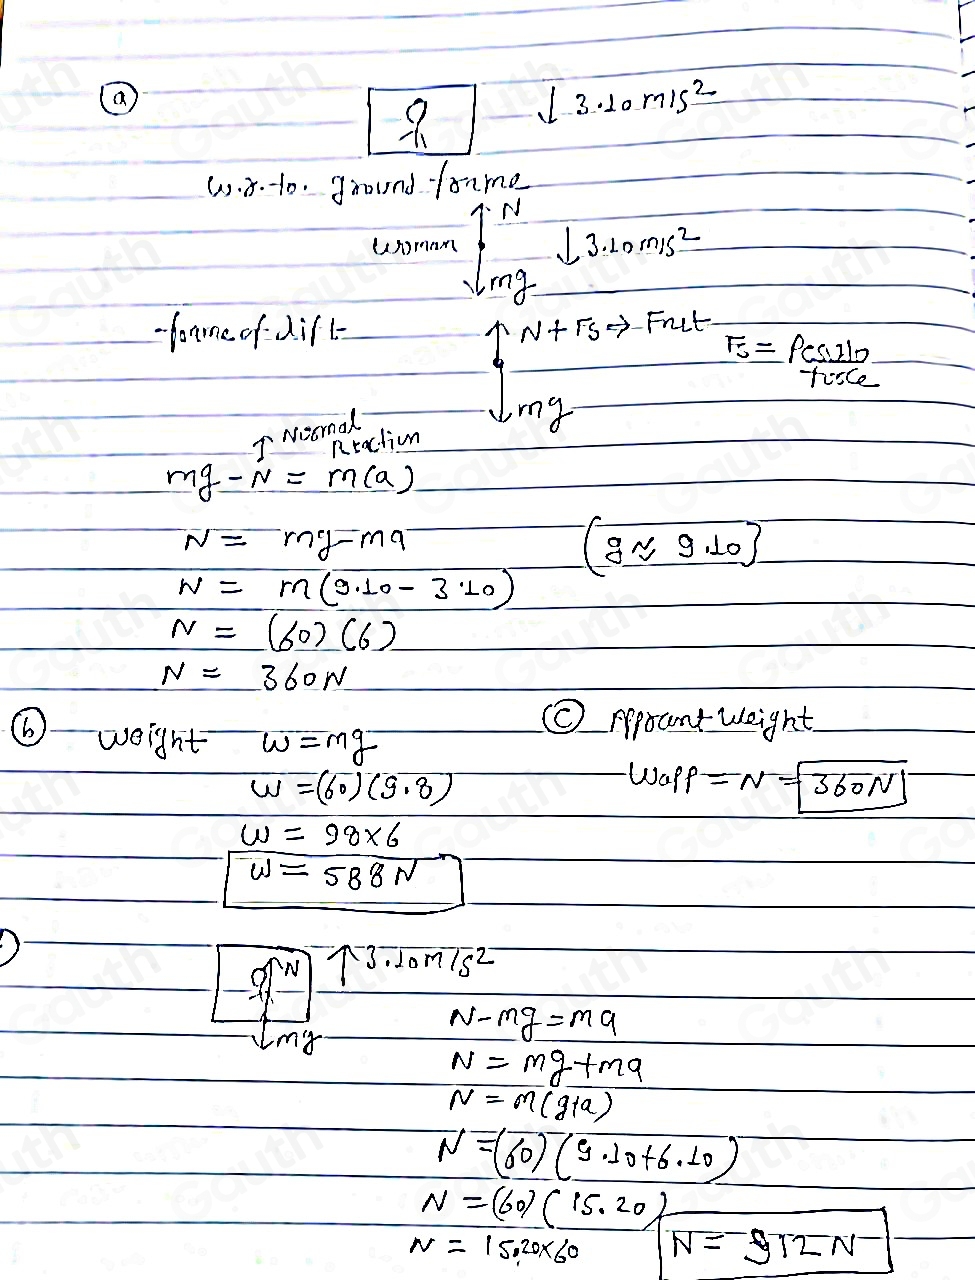 a
↓ 3.10 m/s²
w.r.to. ground frame
↑ N
woman ↓ 3.10 m/s²
↓ mg
frame of lift
↑ N + Fs ⇒ Fnet
Fs = Pesudo
force
↓ mg
↑ Normal
Reaction
mg - N = m(a)
N = mg - ma (g ≈ 9.10)
N = m(9.10 - 3.10)
N = (60)(6)
N = 360N
b weight w = mg
w = (60)(9.8)
w = 98×6
w = 588 N
c Apprant Weight
Wapp = N = 360N
↑ 3.10 m/s²
N
↓ mg
N - mg = ma
N = mg + ma
N = m(g+a)
N = (60)(9.10+6.10)
N = (60)(15.20)
N = 15.20×60
N = 912 N
Gauth